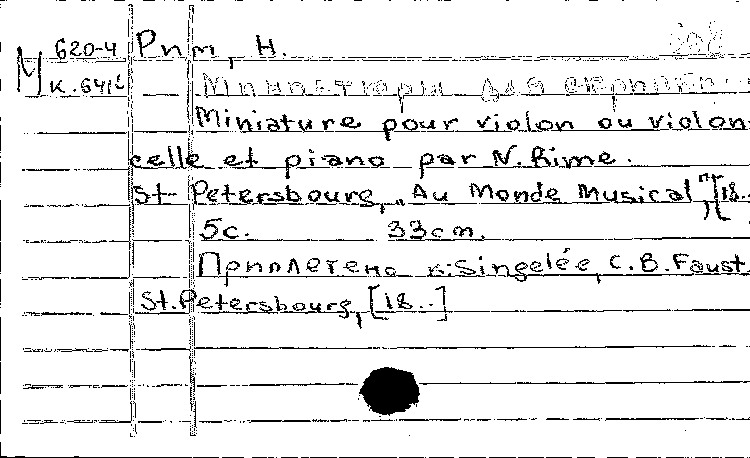 М 620-4 Рим, Н.
К.641
Миниатюра для скрипки
Miniature pour violon ou violon-
celle et piano par N. Rime.
St-Petersbourg, "Au Monde Musical", [18..
5c. 33cm.
Приплетено к: Singelée, C.B. Faust.
St.Petersbourg, [18..]